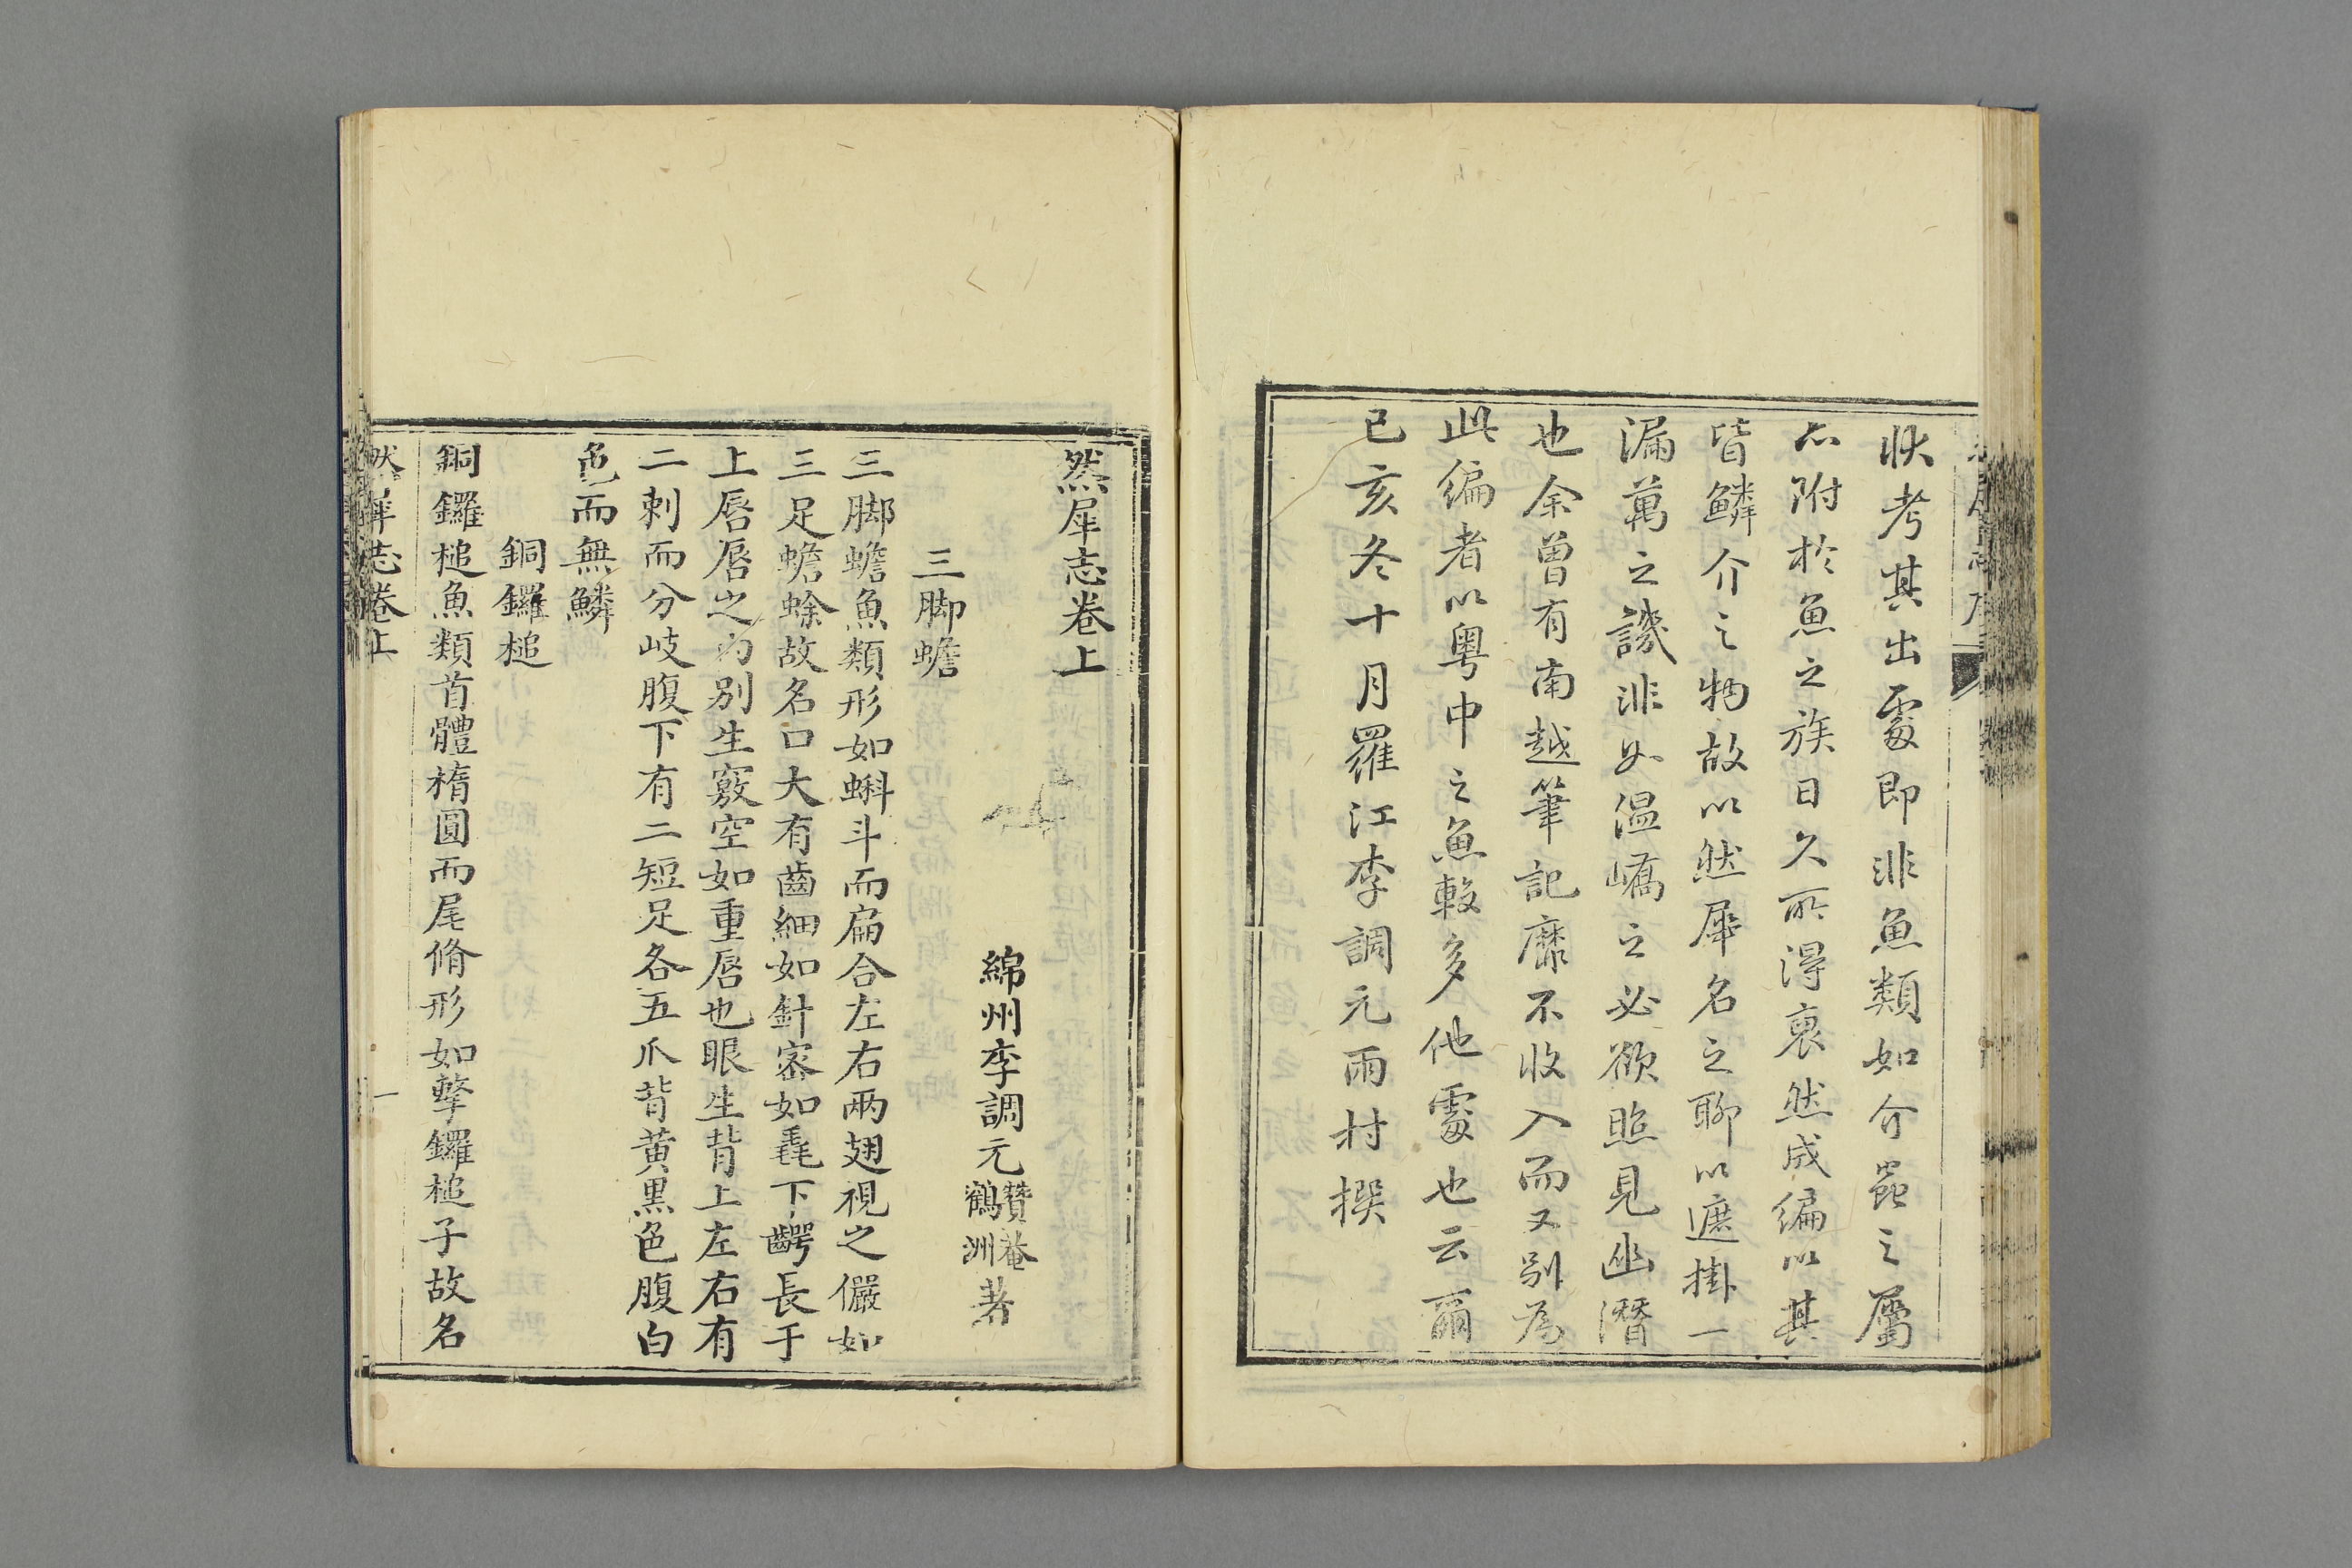 狀考其出處即非魚類如介蟲之屬
亦附於魚之族日久所得裒然成編以其
皆鱗介之物故以然犀名之聊以遮掛一
漏萬之譏非必温嶠之必欲照見幽潛
也余曾有南越筆記靡不收入而又別為
此編者以粤中之魚較多他處也云爾
已亥冬十月羅江李調元雨村撰
然犀志卷上
綿州李調元贊菴鶴洲著
三脚蟾
三脚蟾魚類形如蝌斗而扁合左右兩翅視之儼如
三足蟾蜍故名口大有齒細如針密如毳下齶長于
上唇唇之内别生竅空如重唇也眼生背上左右有
二刺而分岐腹下有二短足各五爪背黄黑色腹白
色而無鱗
銅鑼槌
銅鑼槌魚類首體橢圓而尾脩形如擊鑼槌子故名
然犀志卷上
一